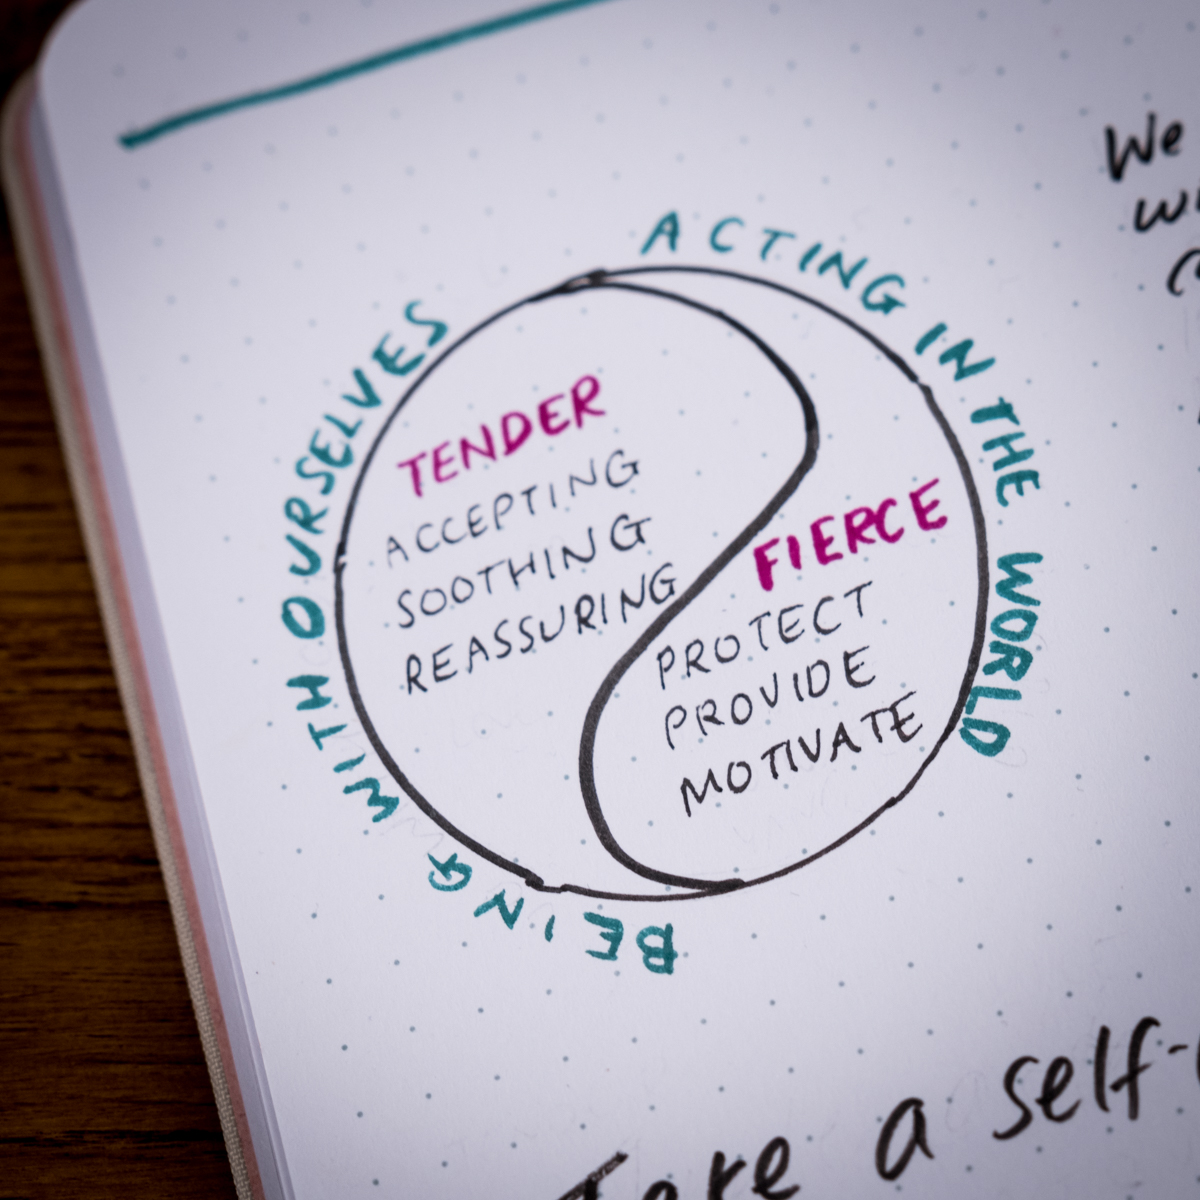 We
ACTING IN THE WORLD
BEING WITH OURSELVES
TENDER
ACCEPTING
SOOTHING
REASSURING
FIERCE
PROTECT
PROVIDE
MOTIVATE
Take a self-